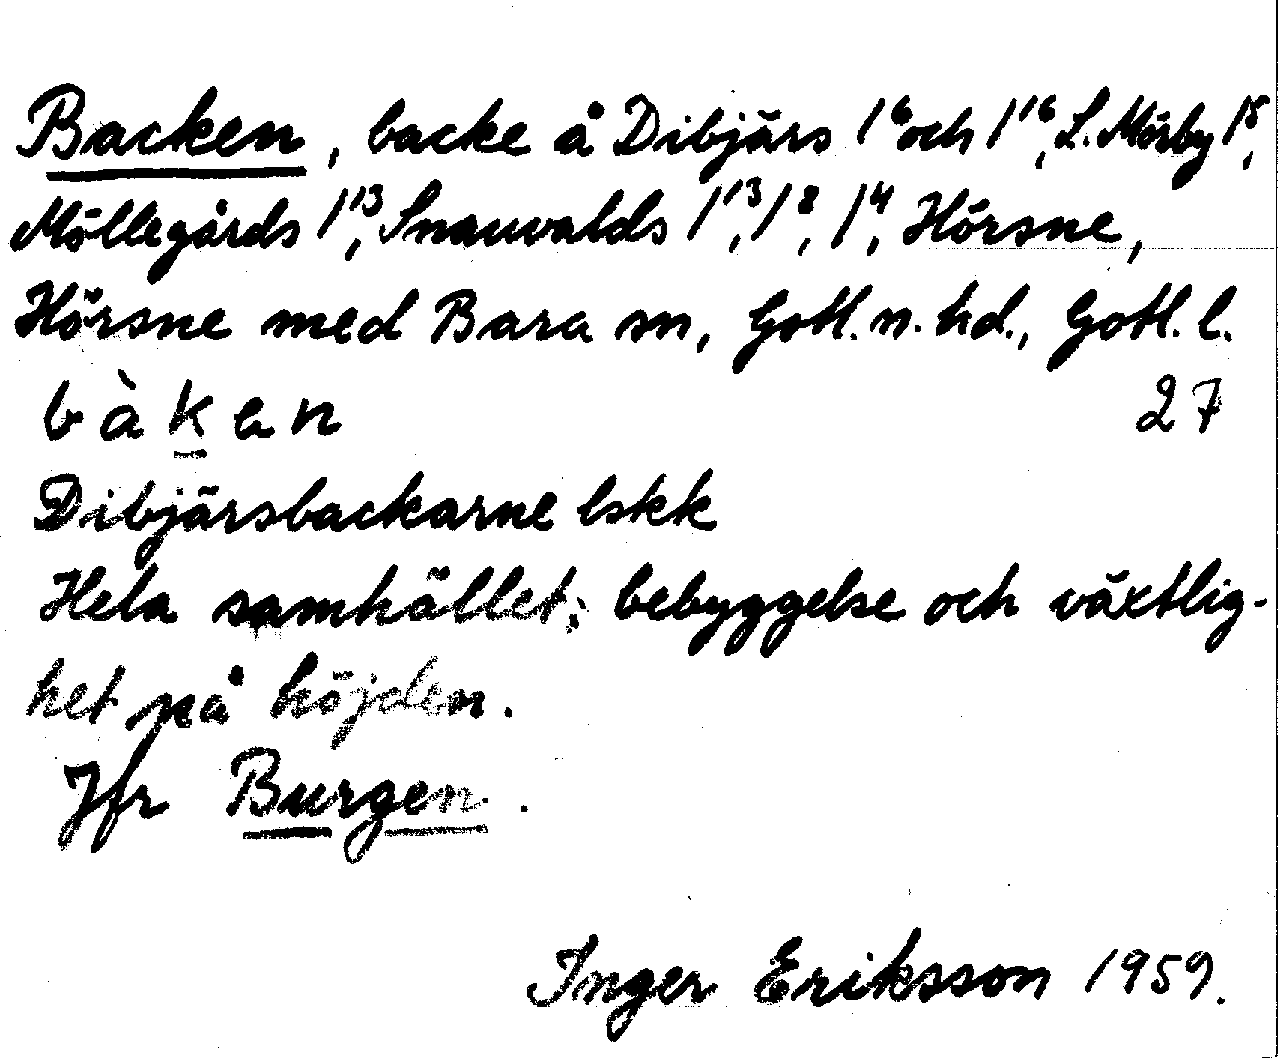 Backen, backe å Dibjärs 1⁶ och 1¹⁶, L. Mörby 1⁸,
Möllegårds 1¹³, Snauvalds 1¹³, 1⁸, 1⁴, Hörsne,
Hörsne med Bara sn, Gotl. n. hd., Gotl. l.
bàken 27
Dibjärsbackarne lskk
Hela samhället; bebyggelse och växtlig-
het på höjden.
Jfr Burgen.
Inger Eriksson 1959.